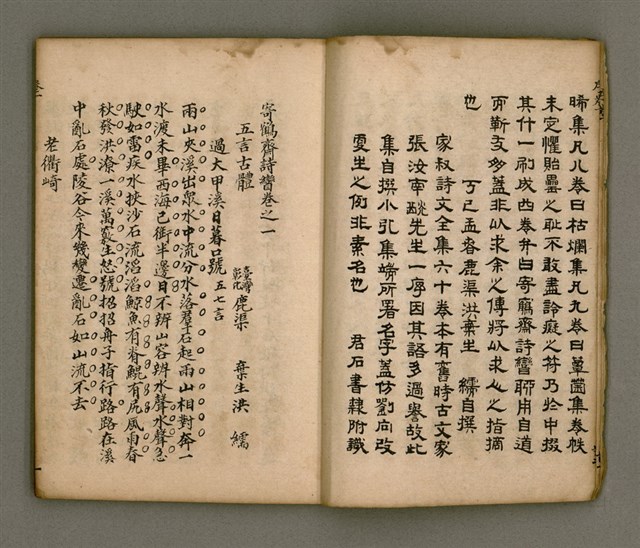 晞集凡八卷曰枯爛集凡九卷曰壐齒集卷帙
未定懼貽疊之恥不敢盡詅癡之符乃於中掇
其什一刷成四卷弁曰寄鶴齋詩矕聊用自道
而靳支多蓋非以求余之傳將以求人之指摘
也　丁巳孟春鹿渠洪棄生　繻自撰
家叔詩文全集六十卷本有舊時古文家
張汝南燚先生一序因其語多過譽故此
集自撰小引集端所署名字蓋仿劉向改
更生之例非素名也　君石書隸附識
寄鶴齋詩矕卷之一
五言古體
臺灣彰化鹿渠　棄生洪　繻
過大甲溪日暮口號 五七言
兩山夾溪出眾水中流分水落群石起兩山相對奔一
水渡未畢西海已銜半邊日不辨山容辨水聲水聲急
駛如雷疾水挾沙石流滔滔鯨魚有脊鯤有尻風雨春
秋發洪潦一溪萬竅生怒號招招舟子指行路路在溪
中亂石處陵谷今來幾變遷亂石如山流不去
老衢崎